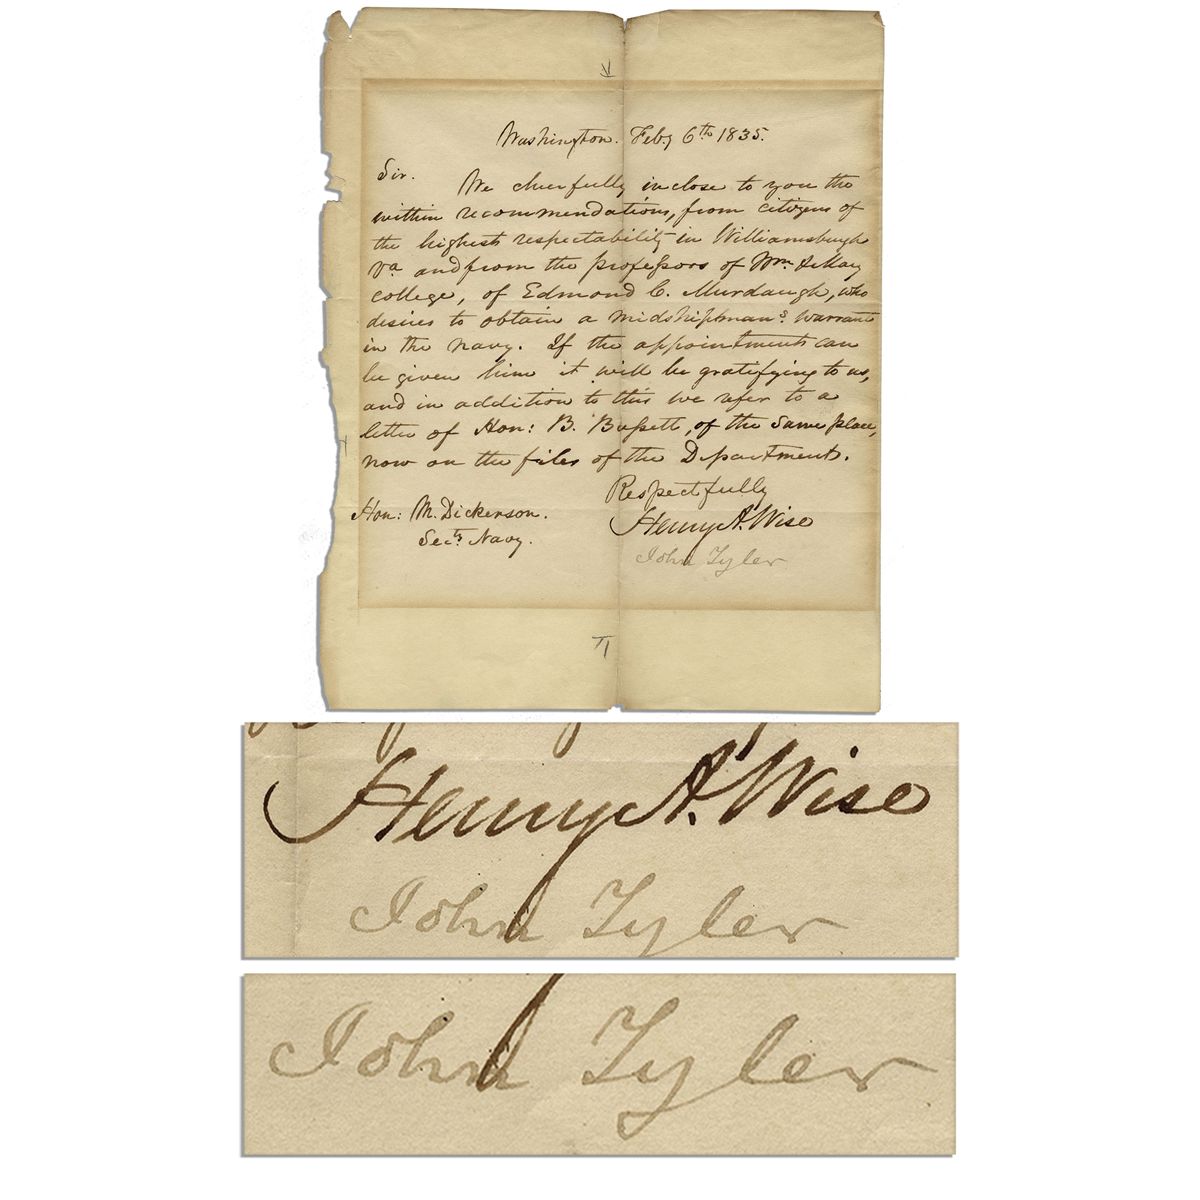 Washington. Feby 6th 1835.
Sir.
We cheerfully inclose to you the
within recommendations, from citizens of
the highest respectability in Williamsburgh
Va and from the professors of Wm & Mary
college, of Edmond C. Murdaugh, who
desires to obtain a midshipman's warrant
in the navy. If the appointment can
be given him it will be gratifying to us,
and in addition to this we refer to a
letter of Hon: B. Bassett, of the same place,
now on the files of the Department.
Respectfully
Henry A. Wise
John Tyler
Hon: M. Dickerson.
Secty Navy.
Henry A. Wise
John Tyler
John Tyler